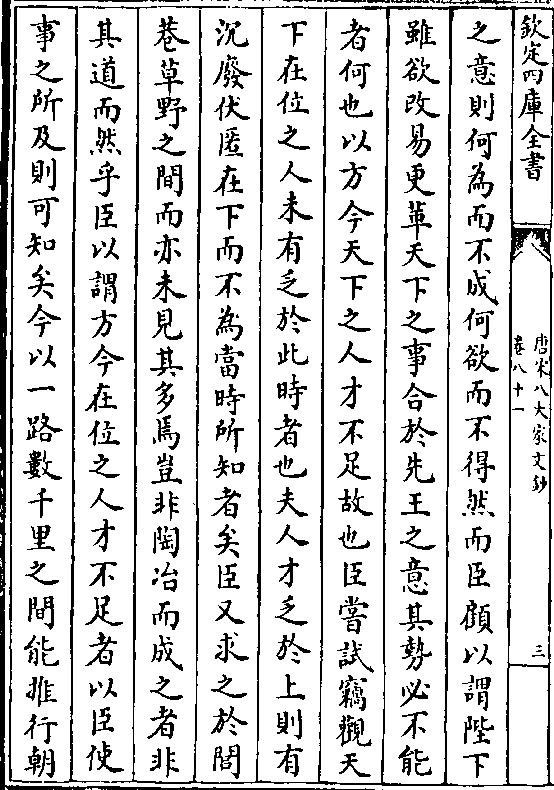 欽定四庫全書
唐宋八大家文鈔
卷八十一
三
之意則何為而不成何欲而不得然而臣顧以謂陛下
雖欲改易更革天下之事合於先王之意其勢必不能
者何也以方今天下之人才不足故也臣嘗試竊觀天
下在位之人未有乏於此時者也夫人才乏於上則有
沉廢伏匿在下而不為當時所知者矣臣又求之於閭
巷草野之間而亦未見其多焉豈非陶冶而成之者非
其道而然乎臣以謂方今在位之人才不足者以臣使
事之所及則可知矣今以一路數千里之間能推行朝